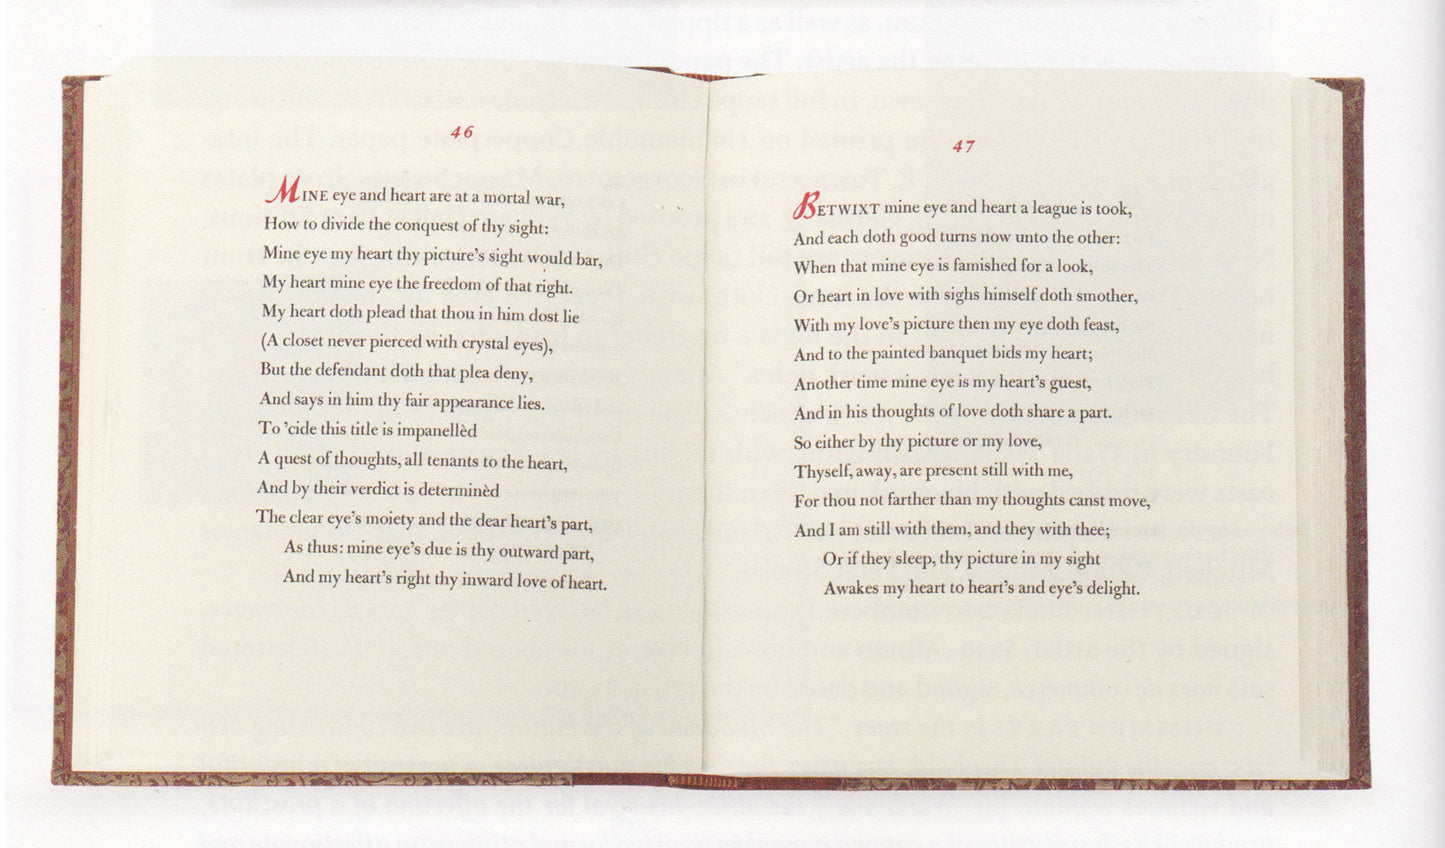 46
MINE eye and heart are at a mortal war,
How to divide the conquest of thy sight:
Mine eye my heart thy picture's sight would bar,
My heart mine eye the freedom of that right.
My heart doth plead that thou in him dost lie
(A closet never pierced with crystal eyes),
But the defendant doth that plea deny,
And says in him thy fair appearance lies.
To 'cide this title is impanellèd
A quest of thoughts, all tenants to the heart,
And by their verdict is determinèd
The clear eye's moiety and the dear heart's part,
As thus: mine eye's due is thy outward part,
And my heart's right thy inward love of heart.
47
BETWIXT mine eye and heart a league is took,
And each doth good turns now unto the other:
When that mine eye is famished for a look,
Or heart in love with sighs himself doth smother,
With my love's picture then my eye doth feast,
And to the painted banquet bids my heart;
Another time mine eye is my heart's guest,
And in his thoughts of love doth share a part.
So either by thy picture or my love,
Thyself, away, are present still with me,
For thou not farther than my thoughts canst move,
And I am still with them, and they with thee;
Or if they sleep, thy picture in my sight
Awakes my heart to heart's and eye's delight.